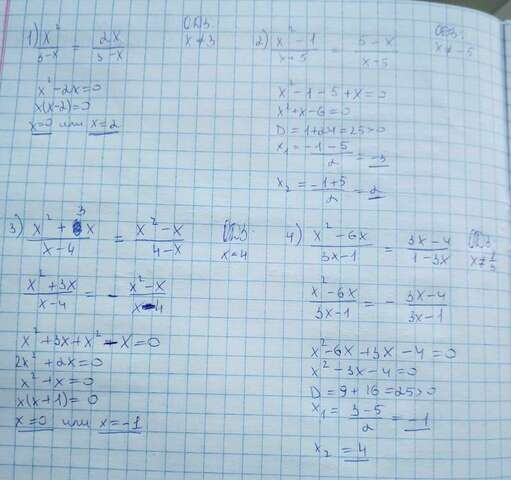 1) x²/3-x = 2x/3-x ОДЗ x≠3
x²-2x=0
x(x-2)=0
x=0 или x=2
2) x²-1/x+5 = 5-x/x+5 ОДЗ: x≠-5
x²-1-5+x=0
x²+x-6=0
D=1+24=25>0
x₁=-1-5/2=-3
x₂=-1+5/2=2
3) x²+3x/x-4 = x²-x/4-x ОДЗ x≠4
x²+3x/x-4 = - x²-x/x-4
x²+3x+x²-x=0
2x²+2x=0
x²+x=0
x(x+1)=0
x=0 или x=-1
4) x²-6x/3x-1 = 3x-4/1-3x ОДЗ x≠1/3
x²-6x/3x-1 = - 3x-4/3x-1
x²-6x+3x-4=0
x²-3x-4=0
D=9+16=25>0
x₁=3-5/2=-1
x₂=4